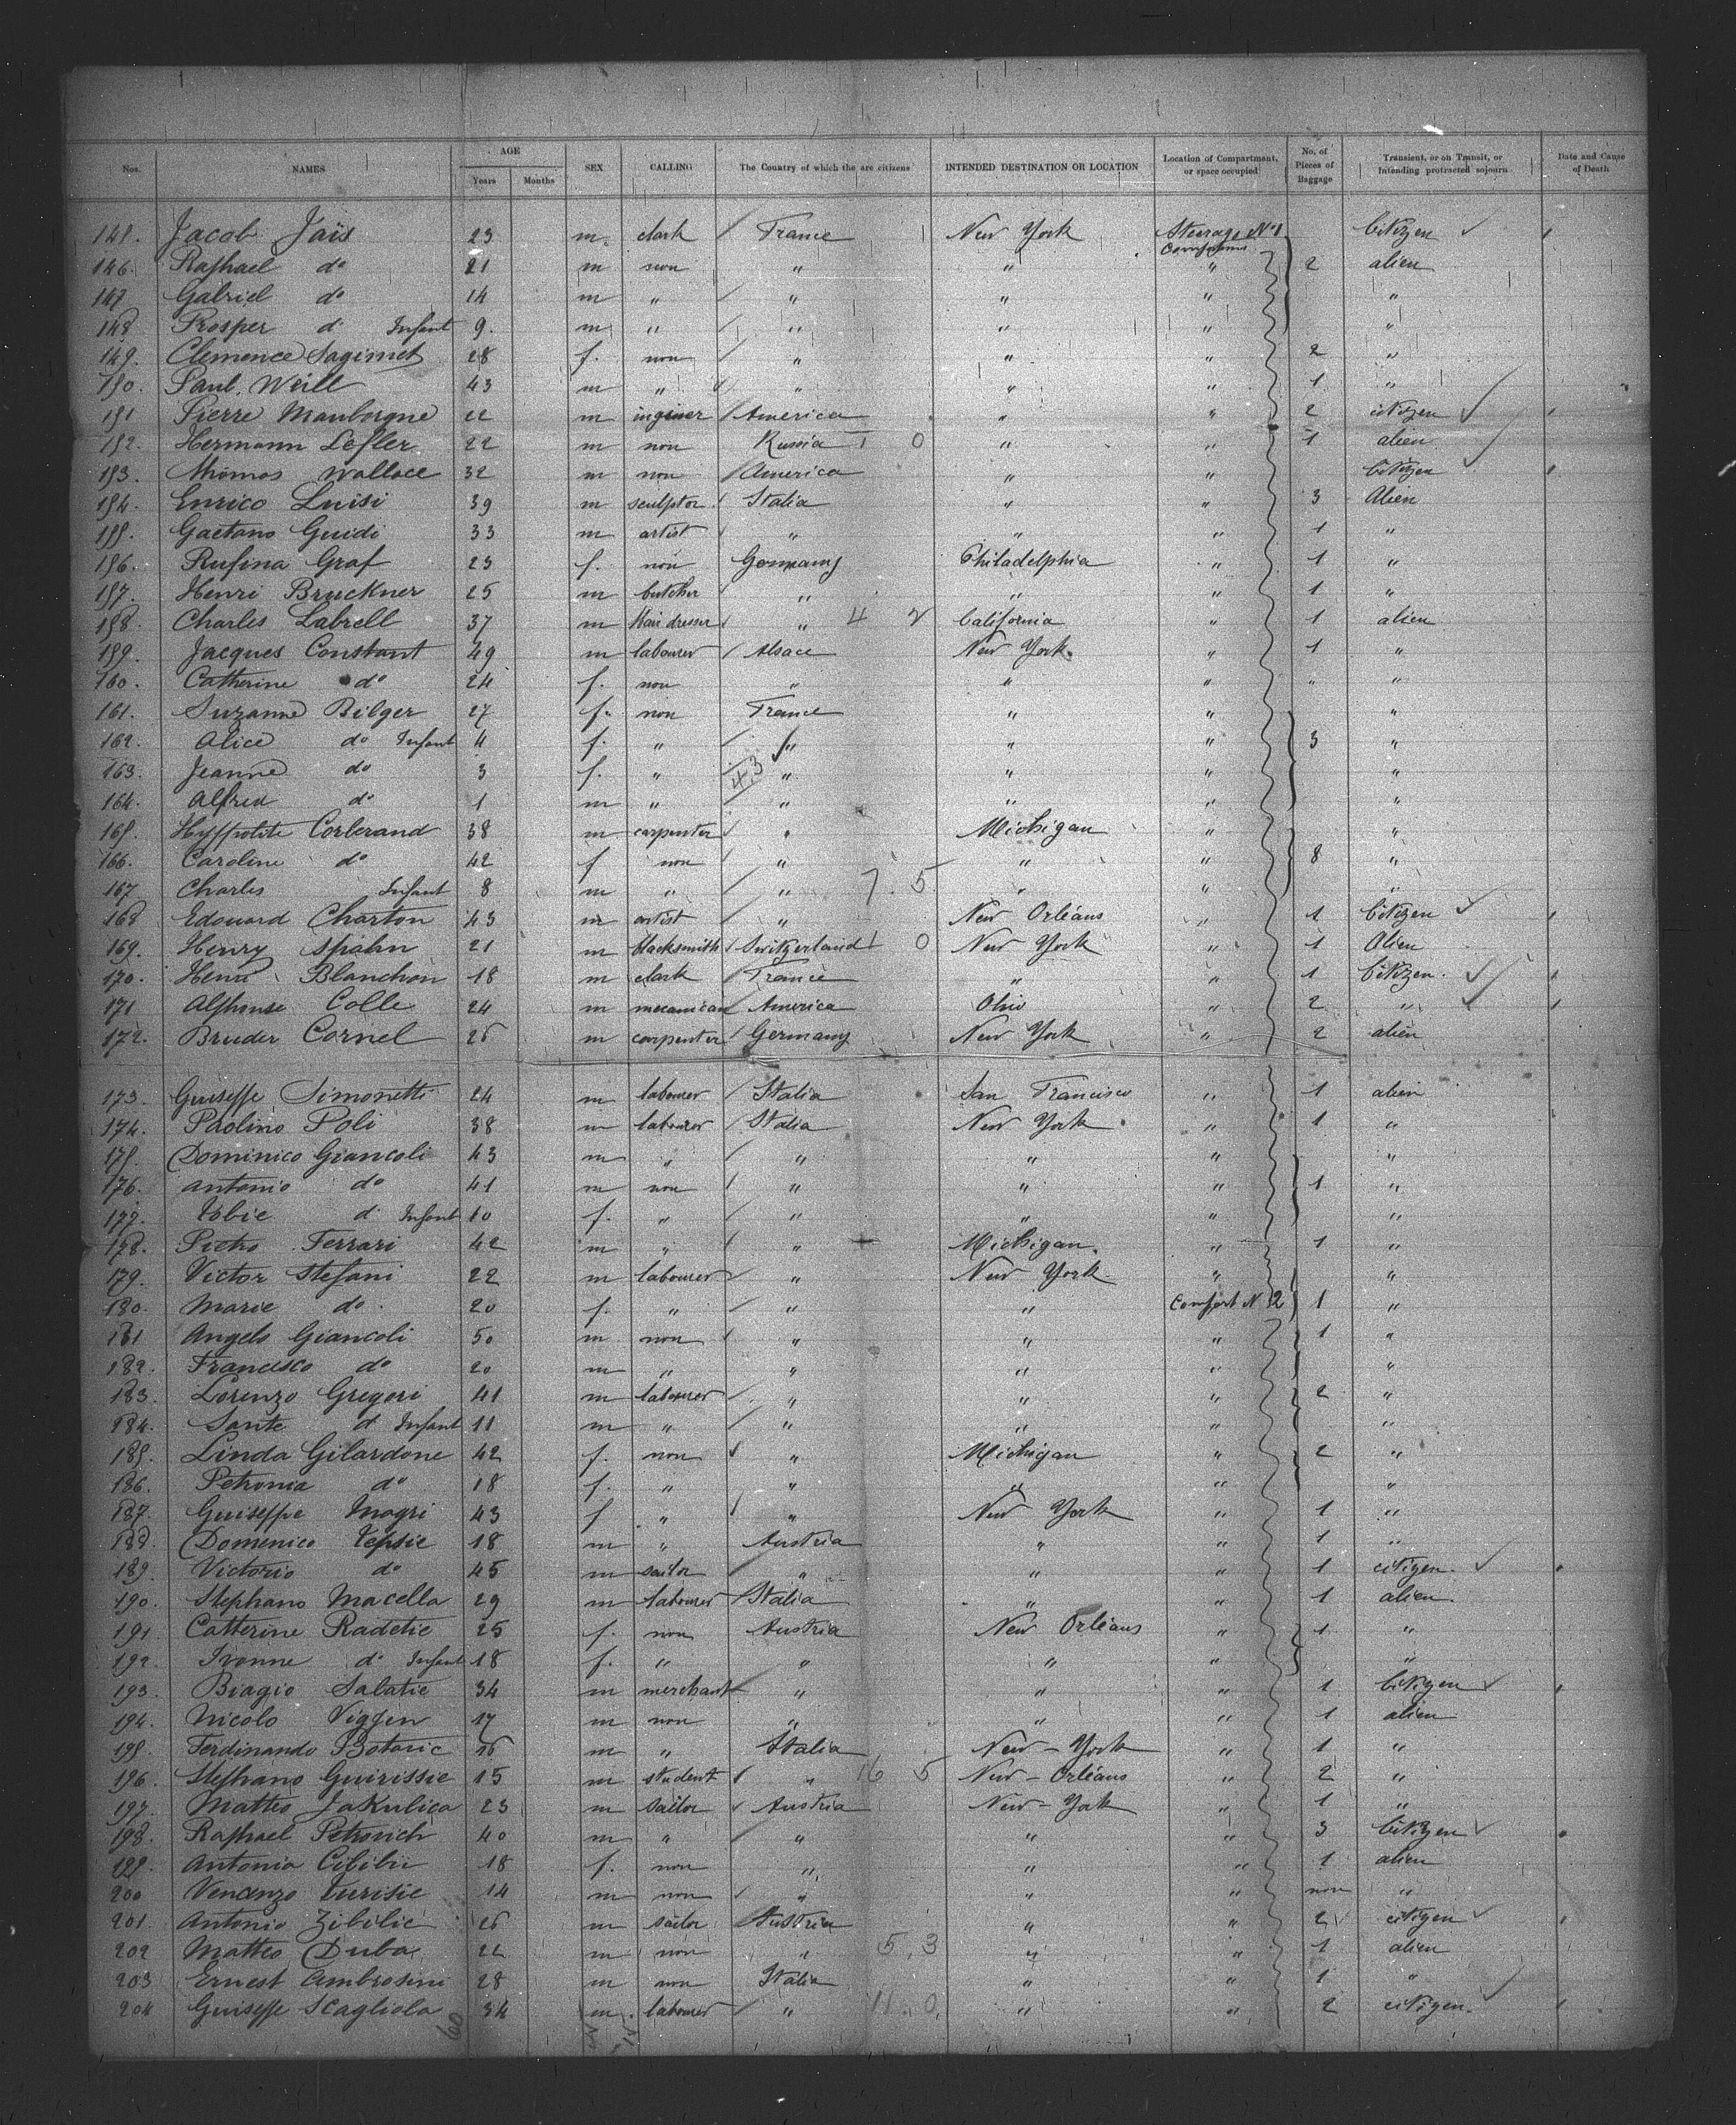 Nos. NAMES AGE Years Months SEX CALLING The Country of which the are citizens INTENDED DESTINATION OR LOCATION Location of Compartment, or space occupied No. of Pieces of Baggage Transient, or on Transit, or Intending protracted sojourn Date and Cause of Death
145. Jacob Jaïs 23 m. clark France New York Steerage No 1 Citizen
146. Raphael do 21 m non " " " 2 alien
147 Gabriel do 14 m " " " " "
148 Prosper do Infant 9. m " " " " "
149. Clemence Sagimet 28 f. non " " " 2 "
150. Paul Weill 43 m " " " " 1 "
151 Pierre Mauborgne 22 m inginer America " " 2 citizen
152. Hermann Lefler 22 m non Russia 1 0 " " 1 alien
153. Thomas Wallace 32 m non America " " Citizen
154. Enrico Luisi 39 m sculptor Italia " " 3 Alien
155. Gaetano Guidi 33 m artist " " " 1 "
156. Rufina Graf 23 f. non Germany Philadelphia " 1 "
157. Henri Bruckner 25 m butcher " " " 1 "
158. Charles Labrell 37 m Hair dresser " 4 2 California " 1 alien
159. Jacques Constant 49 m labourer Alsace New York " 1 "
160. Catherine do 24 f. non " " " " "
161. Suzanne Bilger 27 f. non France " " "
162. Alice do Infant 4 f. " " " " 3 "
163. Jeanne do 3 f. " 4,3 " " " "
164. Alfred do 1 m " " " " "
165. Hyppolite Corberand 38 m carpenter " Michigan " "
166. Caroline do 42 f non " " " 8 "
167 Charles Infant 8 m " " 7. 5 " " "
168 Edouard Charton 43 m artist " New Orléans " 1 Citizen
169. Henry Spahn 21 m blacksmith Switzerland 1 0 New York " 1 Alien
170. Henri Blanchon 18 m clark France " " 1 Citizen.
171 Alphonse Colle 24 m mecanican America Ohio " 2 "
172. Bruder Cornel 25 m carpenter Germany New York " 2 alien
173. Guiseppe Simonetti 24 m labourer Italia San Francisco " 1 alien
174. Paolino Poli 38 m labourer Italia New York " 1 "
175. Dominico Giancoli 43 m " " " " "
176. Antonio do 41 m non " " " 1 "
177. do Infant 10 f. " " " " "
178. Pietro Ferrari 42 m " " Michigan. " 1 "
179. Victor Stefani 22 m labourer " New York " "
180. Marie do 20 f. " " " Compart N 2 1 "
181 Angelo Giancoli 50 m non " " " 1 "
182. Francisco do 20 m " " " " "
183. Lorenzo Gregori 41 m labourer " " " 2 "
184. Sante d Infant 11 m " " " " "
185. Linda Gilardone 42 f. non " Michigan " 2 "
186. Petronia do 18 f. " " " " "
187. Guiseppe Magri 43 f " " New York " 1 "
188. Domenico Tepsie 18 m " Austria " " 1 "
189. Victorio do 45 m sailor " " " 1 citizen.
190. Stephano Macella 29 m labourer Italia " " 1 alien.
191. Catterine Radetic 25 f. non Austria New Orléans " 1 "
192. Ivonne do Infant 18 f. " " " " "
193. Biagio Salatie 34 m merchant " " " 1 Citizen
194. Nicolo 17 m non " " " 1 alien
195. Ferdinando Botaric 16 m " Italia New-York " 1 "
196. Stephano Guirissie 15 m student " 16 5 New-Orléans " 2 "
197. Matteo Jakulica 23 m sailor Austria New-York " 1 "
198. Raphael Petrovich 40 m " " " " 3 Citizen
199. Antonia Cibilii 18 f. non " " " 1 alien
200 Vencenzo Turisic 14 m non " " " non "
201. Antonio Zibilic 26 m sailor Austria " " 2 citizen
202 Matteo Duba 22 m non " 5,3 " " 1 alien
203 Ernest Ambrosini 28 m non Italia " " 1 "
204 Guiseppe Scagliola 34 m labourer " 11. 0 " " 2 citizen.
60